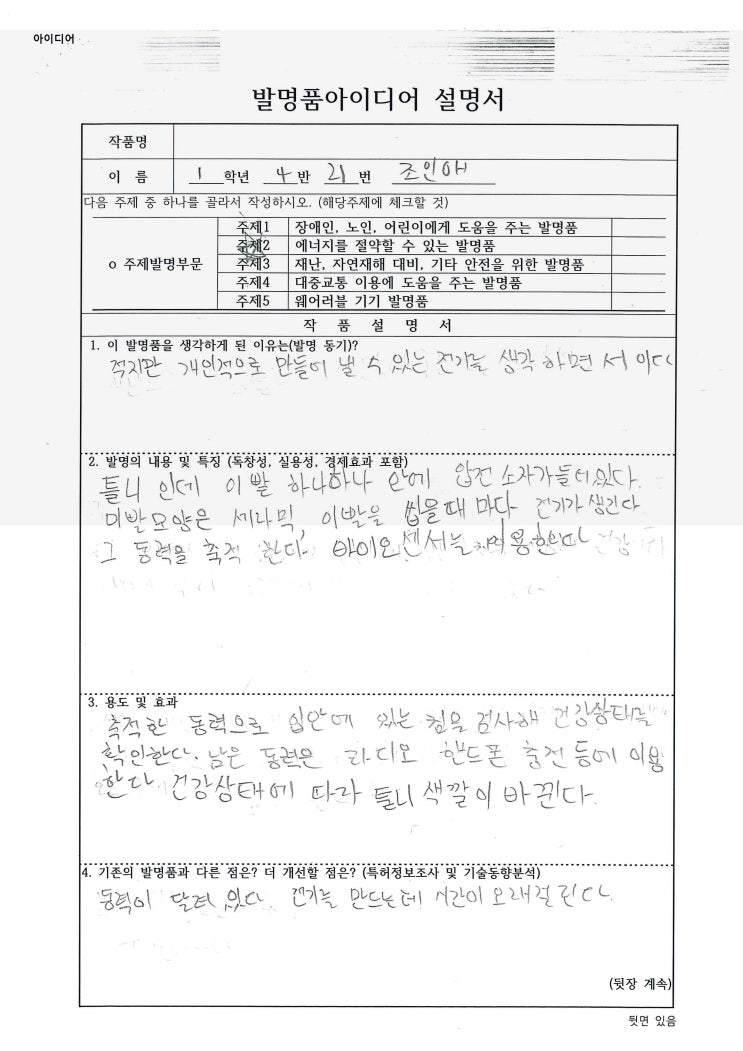 아이디어
발명품아이디어 설명서
작품명
이 름 1 학년 4 반 21 번 조인애
다음 주제 중 하나를 골라서 작성하시오. (해당주제에 체크할 것)
o 주제발명부문
주제1 장애인, 노인, 어린이에게 도움을 주는 발명품
주제2 에너지를 절약할 수 있는 발명품
주제3 재난, 자연재해 대비, 기타 안전을 위한 발명품
주제4 대중교통 이용에 도움을 주는 발명품
주제5 웨어러블 기기 발명품
작 품 설 명 서
1. 이 발명품을 생각하게 된 이유는(발명 동기)?
적지만 개인적으로 만들어 낼 수 있는 전기를 생각하면서 이다
2. 발명의 내용 및 특징 (독창성, 실용성, 경제효과 포함)
틀니 인데 이빨 하나하나 안에 압전 소자가들어있다.
이빨모양은 세라믹, 이빨을 씹을때 마다 전기가 생긴다
그 동력을 축적 한다. 바이오센서를 이용한다
3. 용도 및 효과
축적한 동력으로 입안에 있는 침을 검사해 건강상태를
확인한다. 남은 동력은 라디오 핸드폰 충전 등에 이용
한다. 건강상태에 따라 틀니 색깔이 바뀐다.
4. 기존의 발명품과 다른 점은? 더 개선할 점은? (특허정보조사 및 기술동향분석)
동력이 달려 있다. 전기를 만드는데 시간이 오래걸린다.
(뒷장 계속)
뒷면 있음